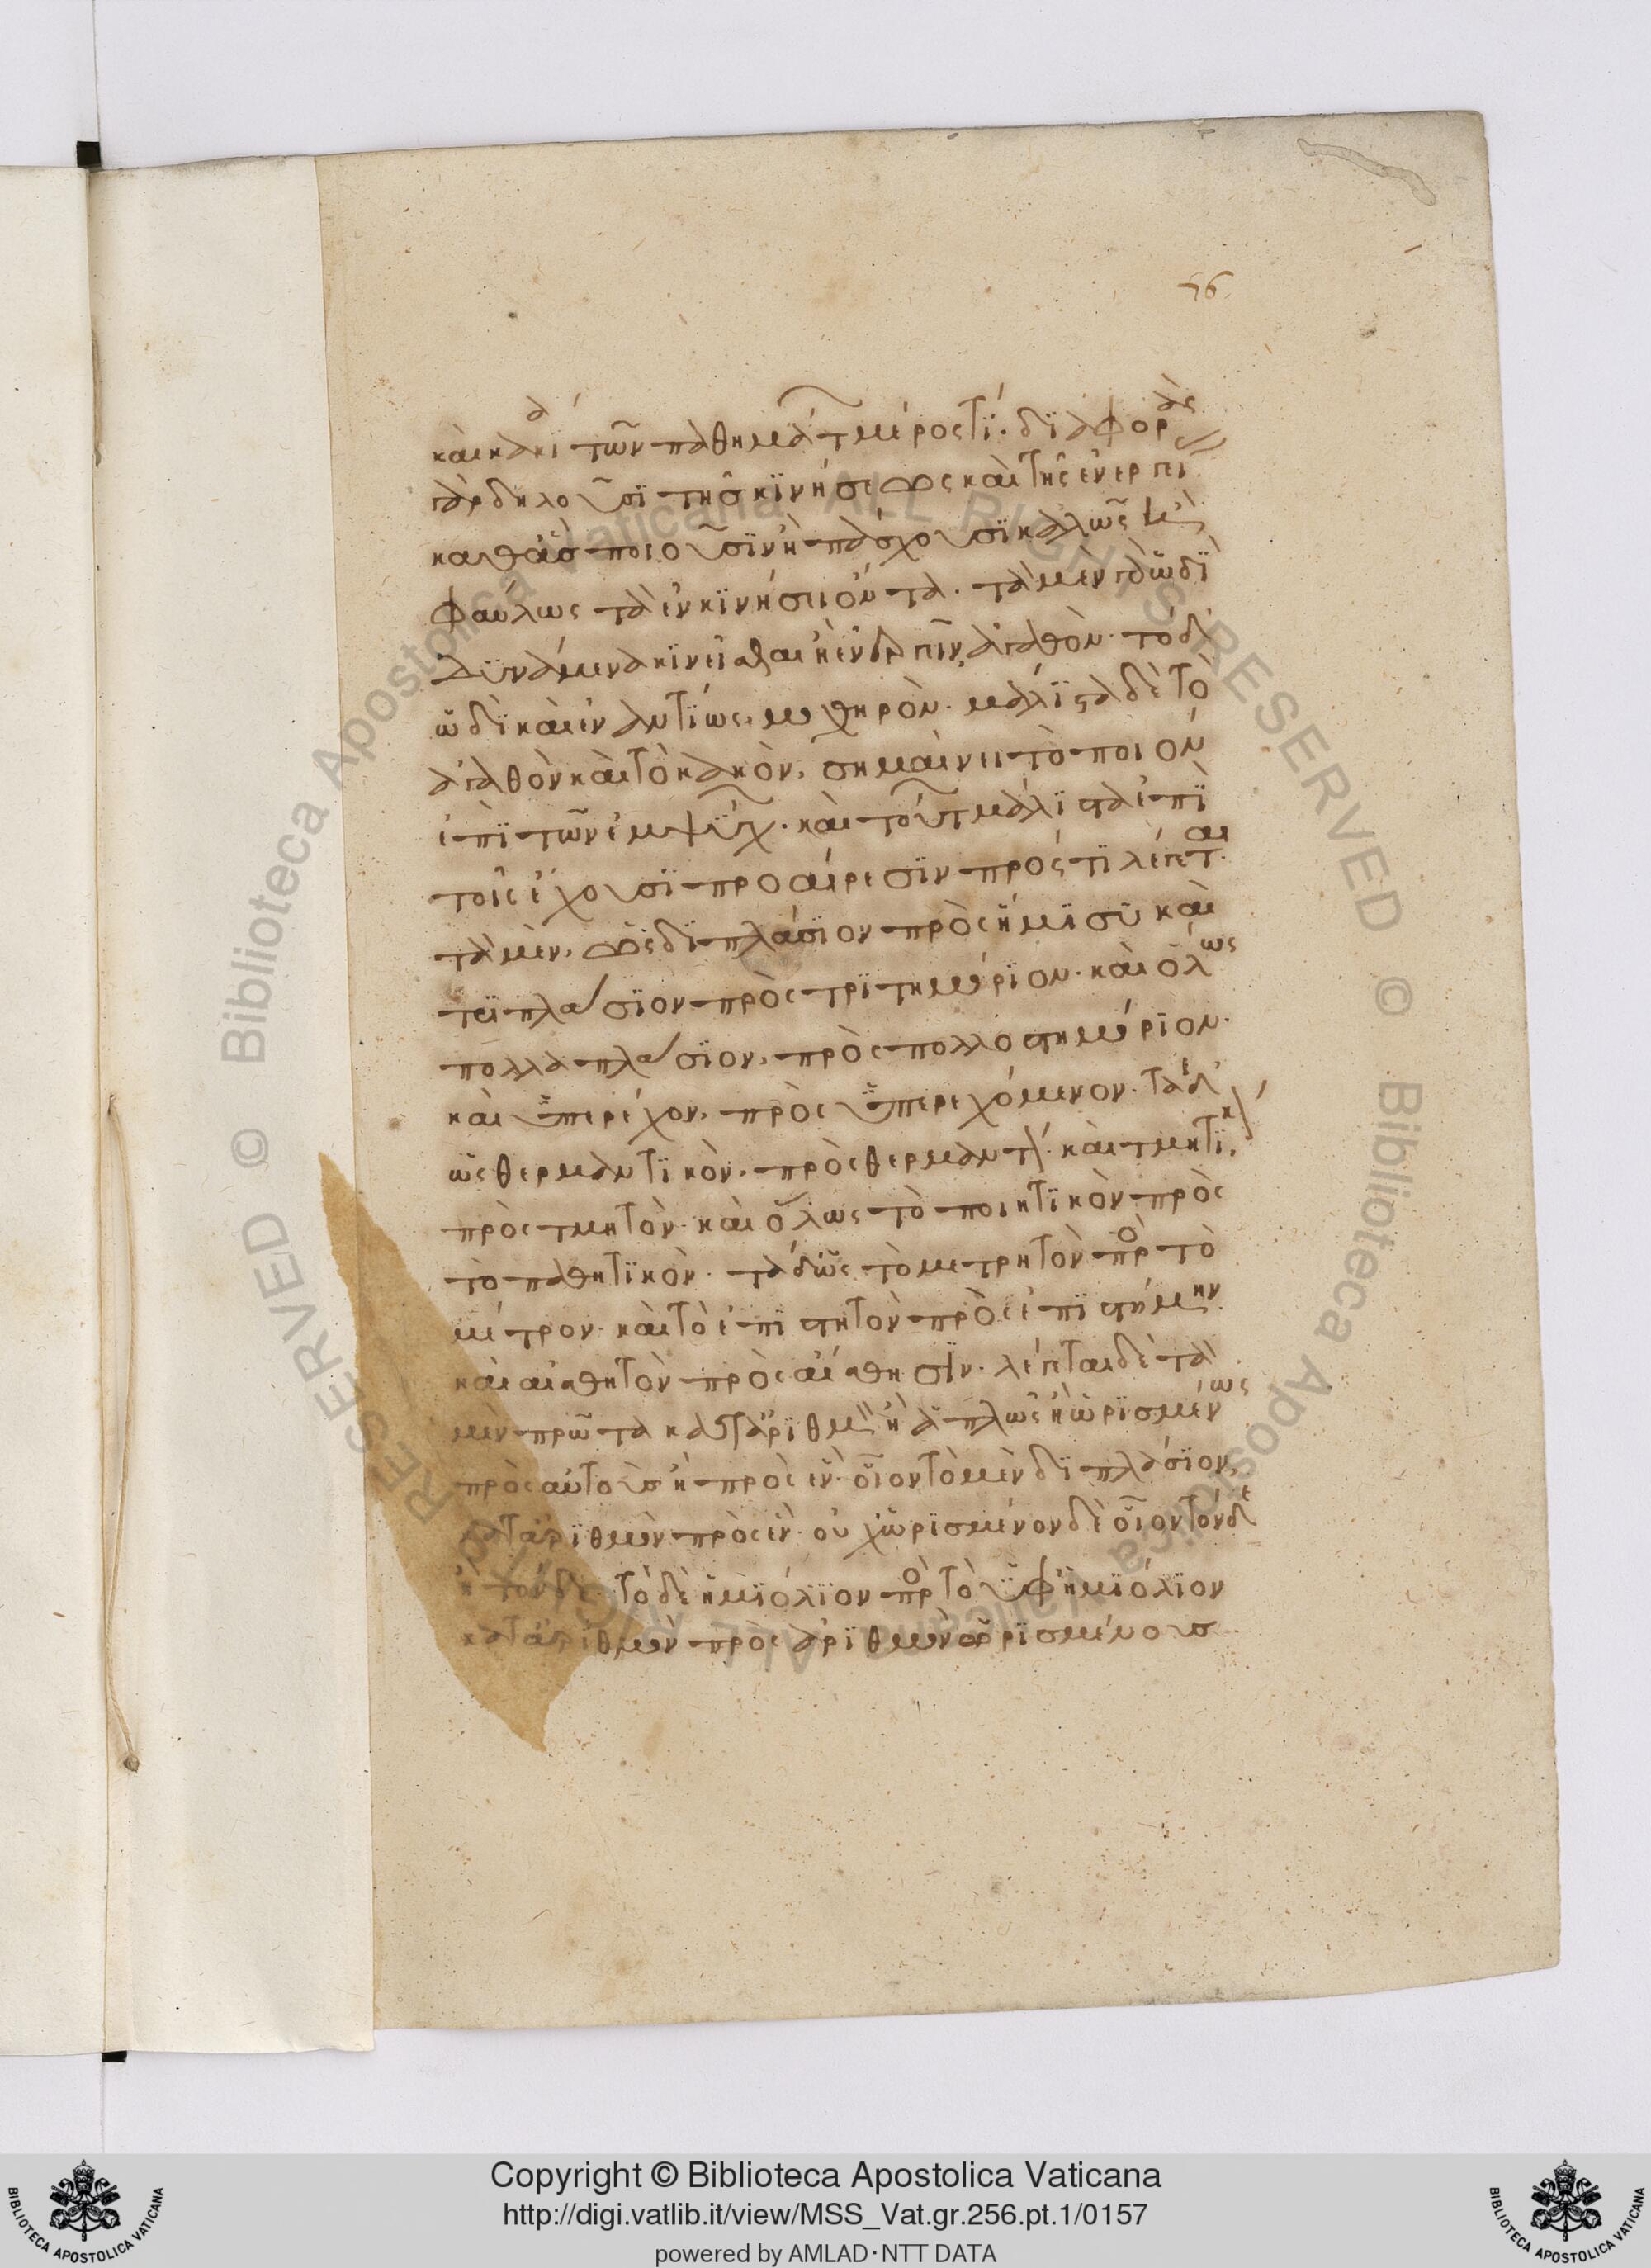 76
καὶ κακία τῶν παθημάτ μέρος τί· διαφορὰς
γὰρ δηλοῦσι τῆς κινήσεως καὶ τῆς ἐνεργεί
καθ' ἃς ποιοῦσιν ἢ πάσχουσι καλῶς ἢ
φαύλως τὰ ἐν κινήσει ὄντα. τὰ μὲν γὰρ ὡδὶ
δυνάμενα κινεῖσθαι ἢ ἐνεργεῖν, ἀγαθόν· τὸ δ'
ὡδὶ καὶ ἐναντίως, μοχθηρόν· μάλιστα δὲ τὸ
ἀγαθὸν καὶ τὸ κακὸν, σημαίνει τὸ ποιὸν
ἐπὶ τῶν ἐμψύχ. καὶ τούτ μάλιστα ἐπὶ
τοῖς ἔχουσι προαίρεσιν πρός τι λέγεται.
τὰ μὲν, ὡς διπλάσιον πρὸς ἥμισυ καὶ
τριπλάσιον πρὸς τριτημόριον· καὶ ὅλως
πολλαπλάσιον, πρὸς πολλοστημόριον·
καὶ ὑπερέχον, πρὸς ὑπερεχόμενον. τὰ δ'
ὡς θερμαντικὸν, πρὸς θερμαντ. καὶ τμητικ
πρὸς τμητόν· καὶ ὅλως τὸ ποιητικὸν πρὸς
τὸ παθητικόν. τὰ δ' ὡς τὸ μετρητὸν πρ τὸ
μέτρον· καὶ τὸ ἐπιστητὸν πρὸς ἐπιστήμην
καὶ αἰσθητὸν πρὸς αἴσθησιν. λέγεται δὲ τὰ
μὲν πρῶτα κατ' ἀριθμ ἢ ἁπλῶς ἢ ὡρισμένως
πρὸς αὐτοὺς ἢ πρὸς ἕν· οἷον τὸ μὲν διπλάσιον,
κατ' ἀριθμὸν πρὸς ἕν· οὐχ ὡρισμένον δὲ οἷον τόνδε
ἢ τόνδε. τὸ δὲ ἡμιόλιον πρ τὸ ὑφημιόλιον
κατ' ἀριθμὸν πρὸς ἀριθμὸν ὡρισμένους
Copyright © Biblioteca Apostolica Vaticana
http://digi.vatlib.it/view/MSS_Vat.gr.256.pt.1/0157
powered by AMLAD·NTT DATA
BIBLIOTECA APOSTOLICA VATICANA
BIBLIOTECA APOSTOLICA VATICANA